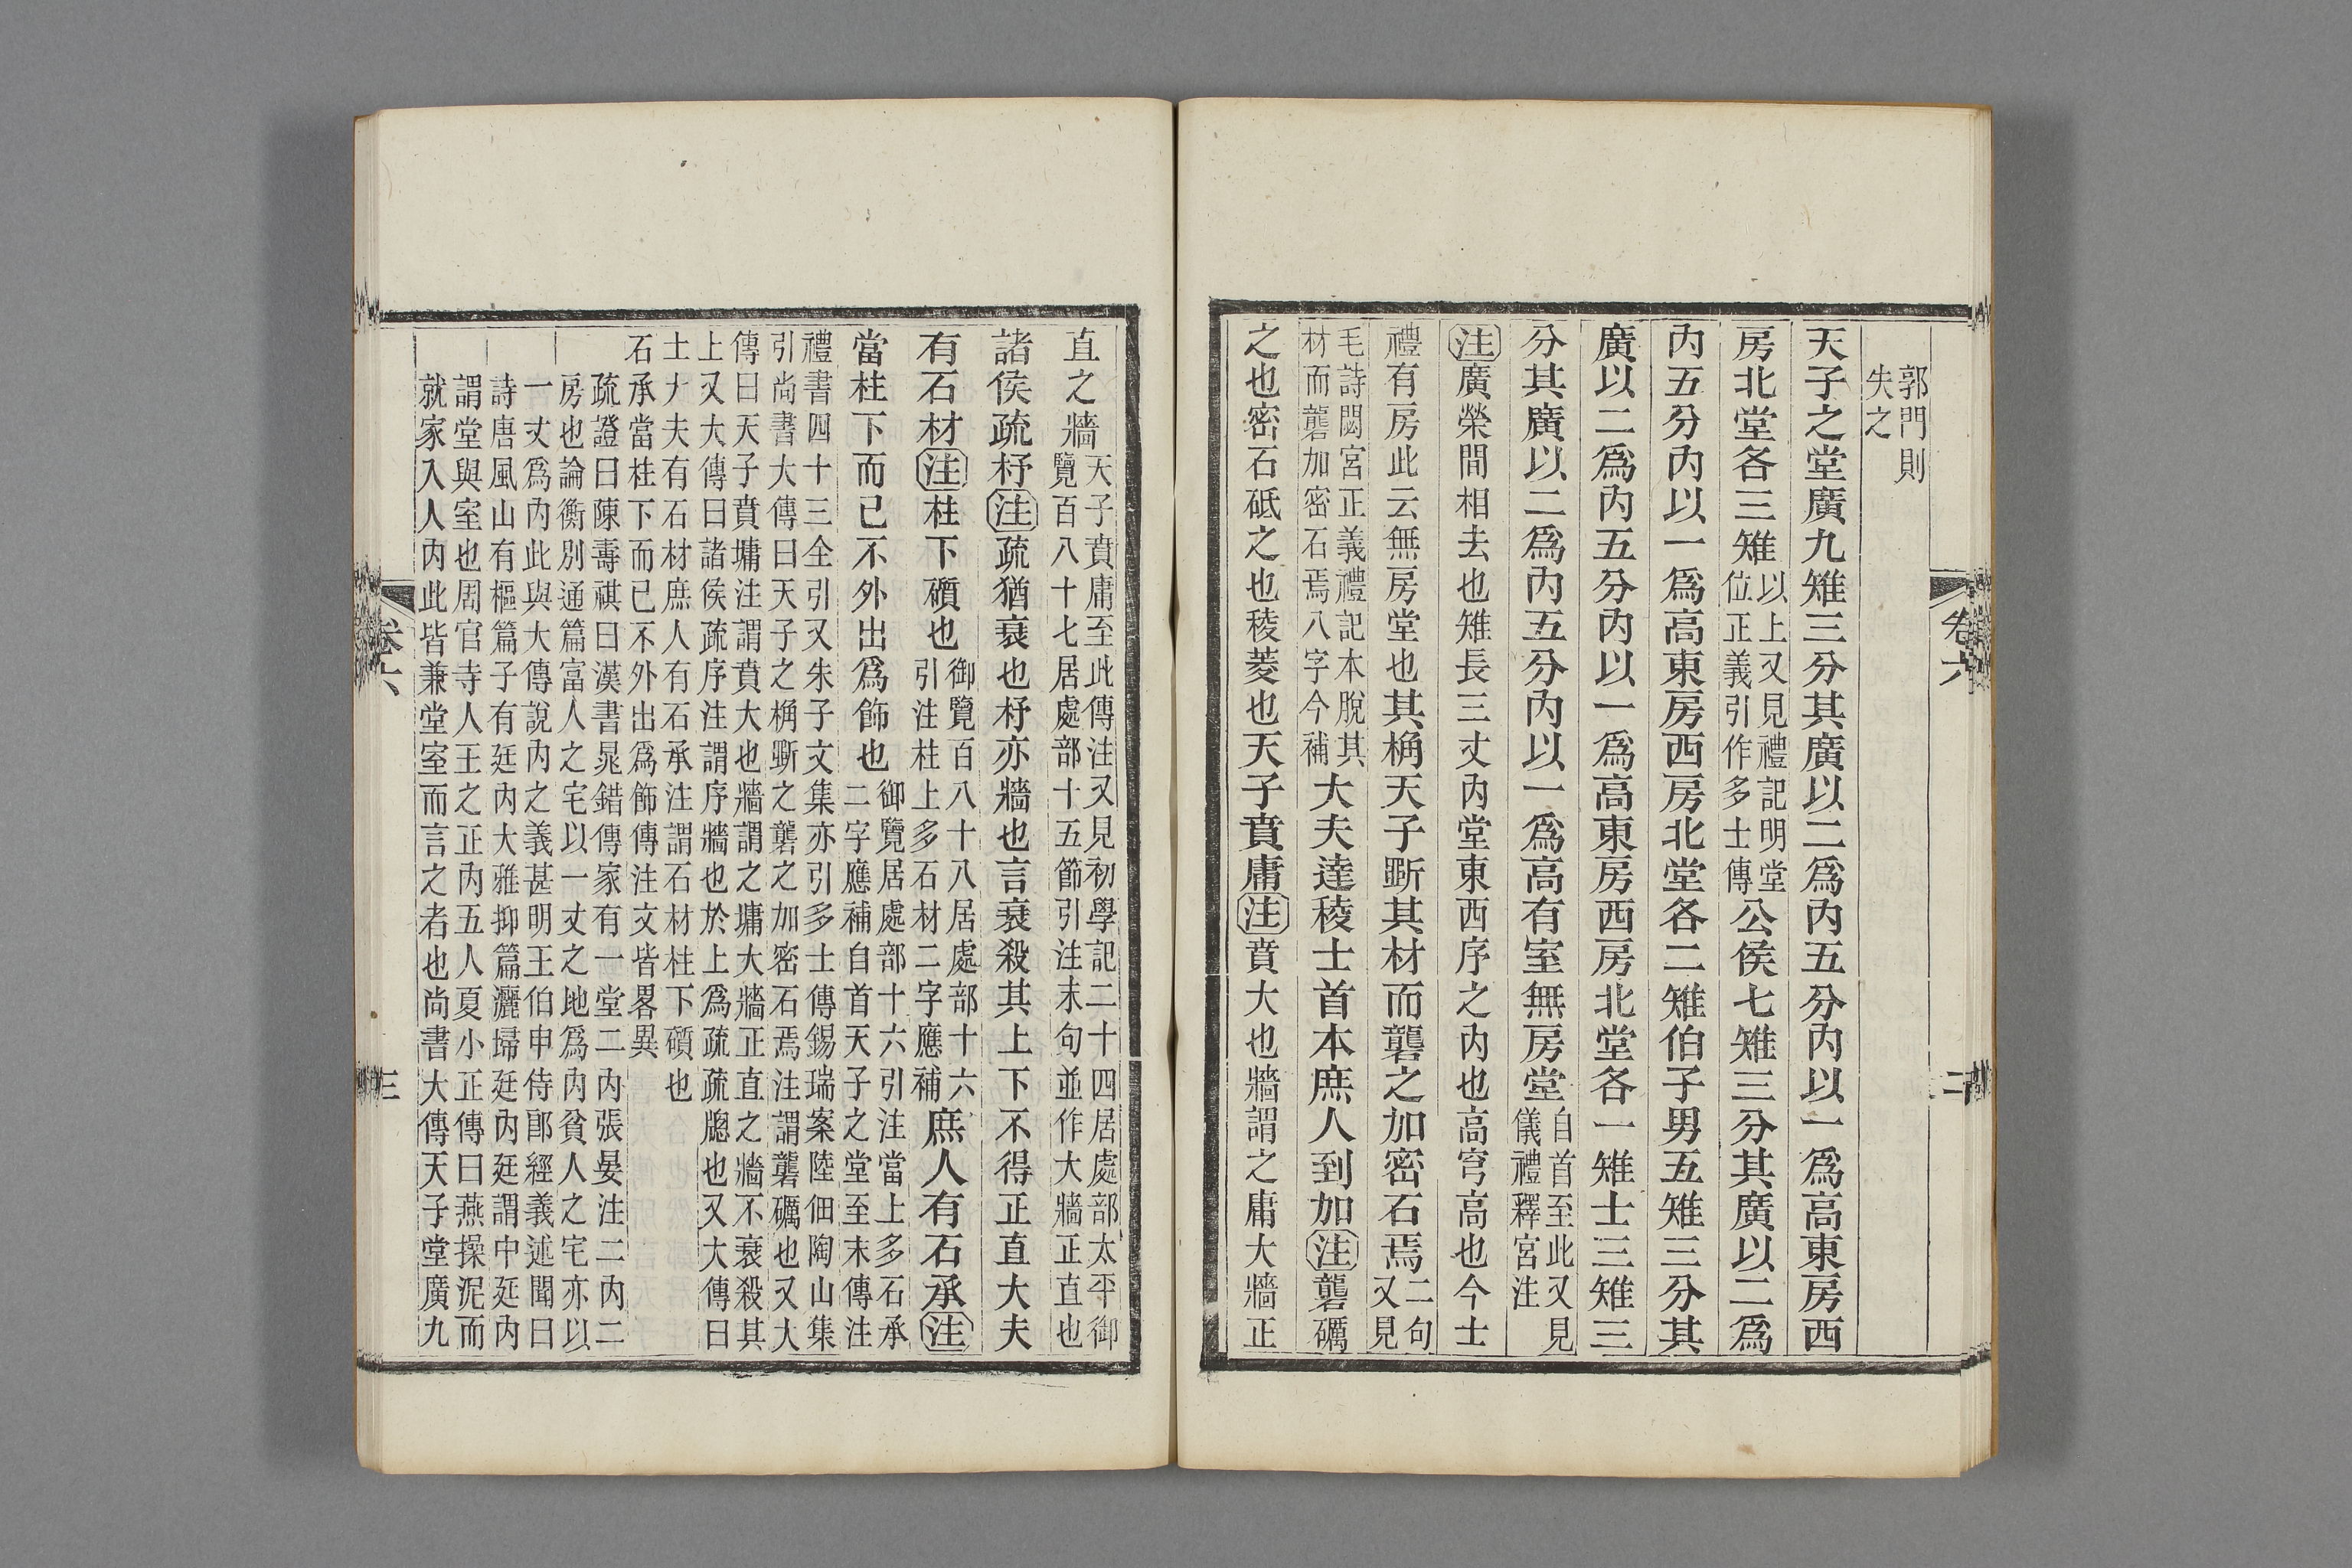 郭門則
失之
天子之堂廣九雉三分其廣以二爲內五分內以一爲高東房西
房北堂各三雉以上又見禮記明堂位正義引作多士傳公侯七雉三分其廣以二爲
內五分內以一爲高東房西房北堂各二雉伯子男五雉三分其
廣以二爲內五分內以一爲高東房西房北堂各一雉士三雉三
分其廣以二爲內五分內以一爲高有室無房堂自首至此又見儀禮釋宮注
注廣榮間相去也雉長三丈內堂東西序之內也高穹高也今士
禮有房此云無房堂也其桷天子斲其材而礱之加密石焉二句又見
毛詩閟宮正義禮記本脫其材而礱加密石焉八字今補大夫達稜士首本庶人到加注礱礪
之也密石砥之也稜菱也天子賁庸注賁大也牆謂之庸大牆正
卷六
二
直之牆天子賁庸至此傳注又見初學記二十四居處部太平御覽百八十七居處部十五節引注末句並作大牆正直也
諸侯疏杼注疏猶衰也杼亦牆也言衰殺其上下不得正直大夫
有石材注柱下礩也御覽百八十八居處部十六引注柱上多石材二字應補庶人有石承注
當柱下而已不外出爲飾也御覽居處部十六引注當上多石承二字應補自首天子之堂至末傳注
禮書四十三全引又朱子文集亦引多士傳錫瑞案陸佃陶山集
引尚書大傳曰天子之桷斲之礱之加密石焉注謂礱礪也又大
傳曰天子賁墉注謂賁大也牆謂之墉大牆正直之牆不衰殺其
上又大傳曰諸侯疏序注謂序牆也於上爲疏疏牎也又大傳曰
士大夫有石材庶人有石承注謂石材柱下礩也
石承當柱下而已不外出爲飾傳注文皆畧異
疏證曰陳壽祺曰漢書晁錯傳家有一堂二內張晏注二內二
房也論衡別通篇富人之宅以一丈之地爲內貧人之宅亦以
一丈爲內此與大傳說內之義甚明王伯申侍郎經義述聞曰
詩唐風山有樞篇子有廷內大雅抑篇灑埽廷內廷謂中廷內
謂堂與室也周官寺人王之正內五人夏小正傳曰燕操泥而
就家入人內此皆兼堂室而言之者也尚書大傳天子堂廣九
卷六
三